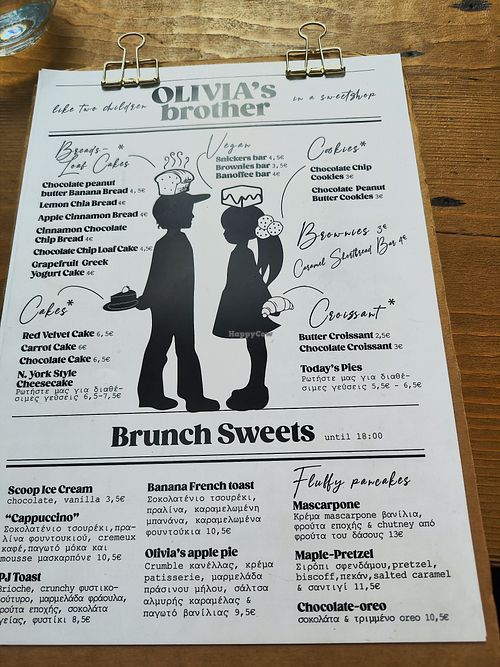 OLIVIA's
like two children brother in a sweetshop
Breads- *
Loaf Cakes
Chocolate peanut
butter Banana Bread 4,5€
Lemon Chia Bread 4€
Apple Cinnamon Bread 4€
Cinnamon Chocolate
Chip Bread 4€
Chocolate Chip Loaf Cake 4,5€
Grapefruit Greek
Yogurt Cake 4€
Vegan
Snickers bar 4,5€
Brownies bar 3,5€
Banoffee bar 4€
Cookies*
Chocolate Chip
Cookies 3€
Chocolate Peanut
Butter Cookies 3€
Brownies 3€
Caramel Shortbread Bar 4€
Cakes*
Red Velvet Cake 6,5€
Carrot Cake 6€
Chocolate Cake 6,5€
N. York Style
Cheesecake
Ρωτήστε μας για διαθέ-
σιμες γεύσεις 6,5-7,5€
Croissant*
Butter Croissant 2,5€
Chocolate Croissant 3€
Today's Pies
Ρωτήστε μας για διαθέ-
σιμες γεύσεις 5,5€ - 6,5€
HappyCow
Brunch Sweets until 18:00
Scoop Ice Cream
chocolate, vanilla 3,5€
"Cappuccino"
Σοκολατένιο τσουρέκι,πρα-
λίνα φουντουκιού, cremeux
καφέ,παγωτό μόκα και
mousse μασκαρπόνε 10,5€
PJ Toast
Brioche, crunchy φυστικο-
βούτυρο, μαρμελάδα φράουλα,
φρούτα εποχής, σοκολάτα
γείας, φυστίκι 8,5€
Banana French toast
Σοκολατένιο τσουρέκι,
πραλίνα, καραμελωμένη
μπανάνα, καραμελωμένα
φουντούκια 10,5€
Olivia's apple pie
Crumble κανέλλας, κρέμα
patisserie, μαρμελάδα
πράσινου μήλου, σάλτσα
αλμυρής καραμέλας &
παγωτό βανίλιας 9,5€
Fluffy pancakes
Mascarpone
Κρέμα mascarpone βανίλια,
φρούτα εποχής & chutney από
φρούτα του δάσους 13€
Maple-Pretzel
Σιρόπι σφενδάμου,pretzel,
biscoff,πεκάν,salted caramel
& σαντιγί 11,5€
Chocolate-oreo
σοκολάτα & τριμμένο oreo 10,5€